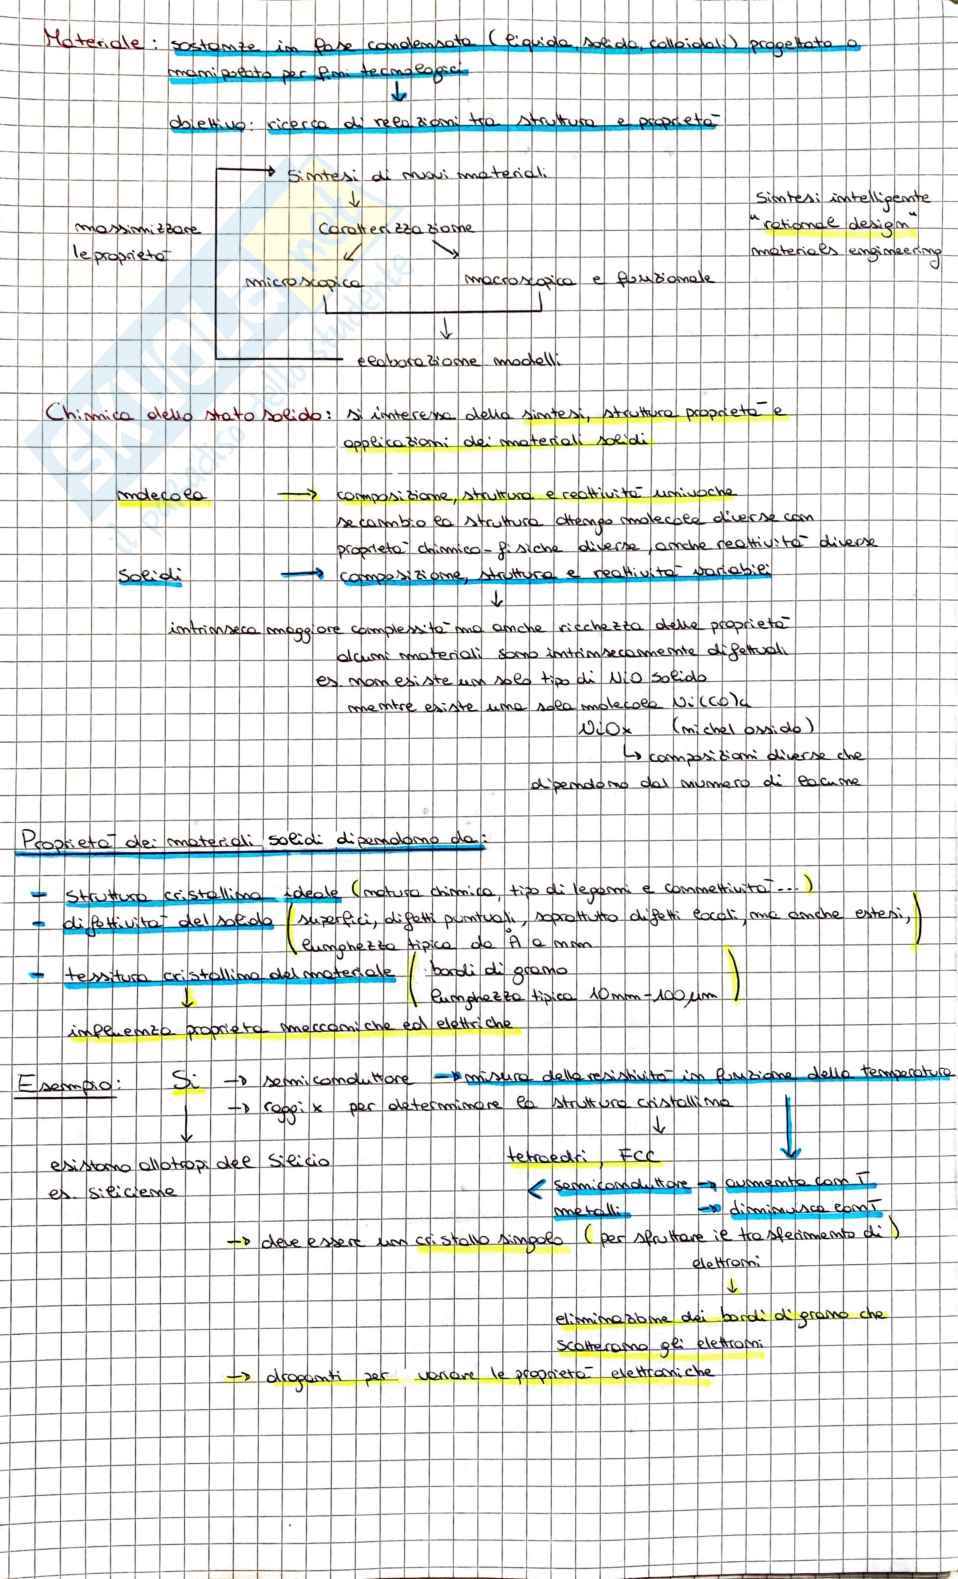 Materiale: sostanze in fase condensata (liquida, solida, colloidali) progettato o
manipolato per fini tecnologici
↓
obiettivo: ricerca di relazioni tra struttura e proprietà
→ Sintesi di nuovi materiali
↓
massimizzare
le proprietà
caratterizzazione
↙ ↘
microscopica macroscopica e funzionale
↓
elaborazione modelli
sintesi intelligente
"rational design"
materials engineering
Chimica dello stato solido: si interessa della sintesi, struttura proprietà e
applicazioni dei materiali solidi
molecola → composizione, struttura e reattività univoche
se cambio la struttura ottengo molecole diverse con
proprietà chimico-fisiche diverse, anche reattività diverse
Solidi → composizione, struttura e reattività variabili
↓
intrinseca maggiore complessità ma anche ricchezza delle proprietà
alcuni materiali sono intrinsecamente difettuali
es. non esiste un solo tipo di NiO solido
mentre esiste una sola molecola Ni(CO)4
NiOx (nichel ossido)
↳ composizioni diverse che
dipendono dal numero di lacune
Proprietà dei materiali solidi dipendono da:
- Struttura cristallina ideale (natura chimica, tipo di legami e connettività...)
- difettività del solido (superfici, difetti puntuali, soprattutto difetti locali, ma anche estesi,
lunghezza tipica da Å a mm)
- tessitura cristallina del materiale (bordi di grano
lunghezza tipica 10mm-100μm)
↓
influenza proprietà meccaniche ed elettriche
Esempio: Si → semiconduttore → misura della resistività in funzione della temperatura
→ raggi x per determinare la struttura cristallina
↓
esistono allotropi del silicio
es. silicene
tetraedri, FCC
< semiconduttore → aumenta con T
metalli → diminuisce con T
→ deve essere un cristallo singolo (per sfruttare il trasferimento di)
elettroni
↓
eliminazione dei bordi di grano che
scatterano gli elettroni
→ droganti per variare le proprietà elettroniche
SKUOLA.net
il paradiso dello studente